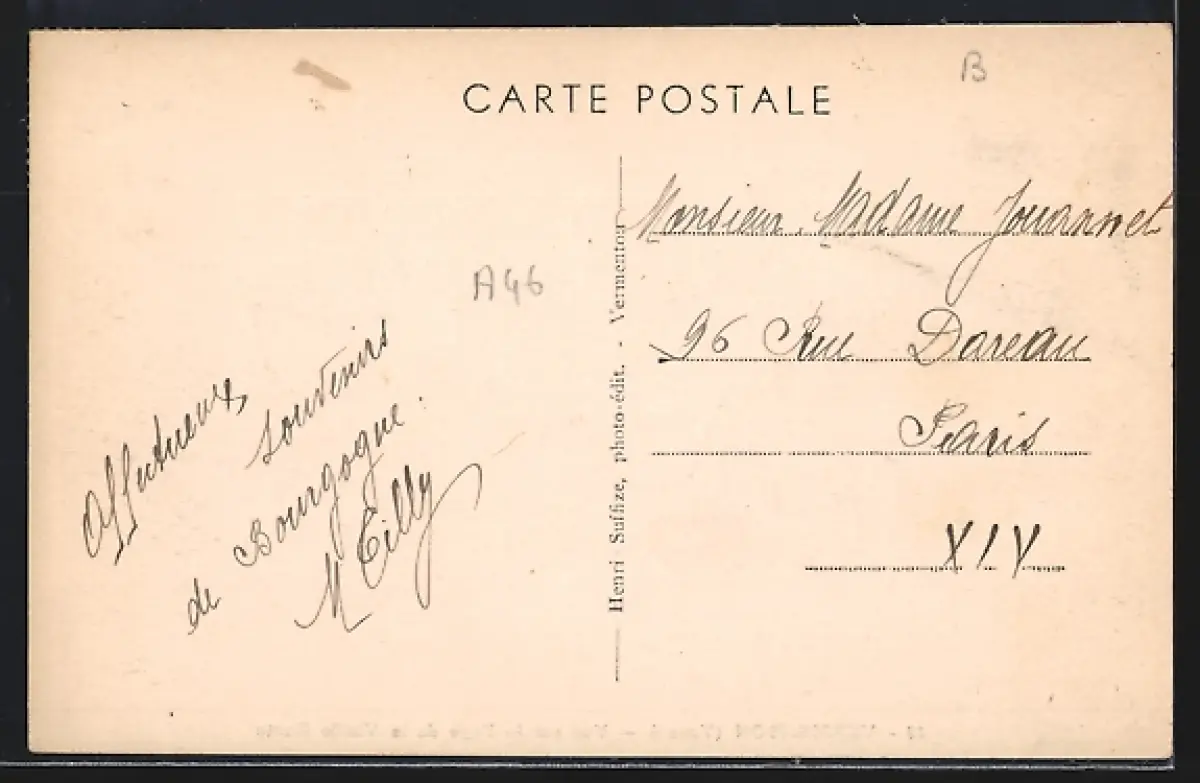 CARTE POSTALE
B
A46
Affectueux
souvenirs
de Bourgogne.
M Tilly
Henri Suffize, photo-édit. - Vermenton
Monsieur, Madame Jouannet
96 Rue Dareau
Paris
XIV